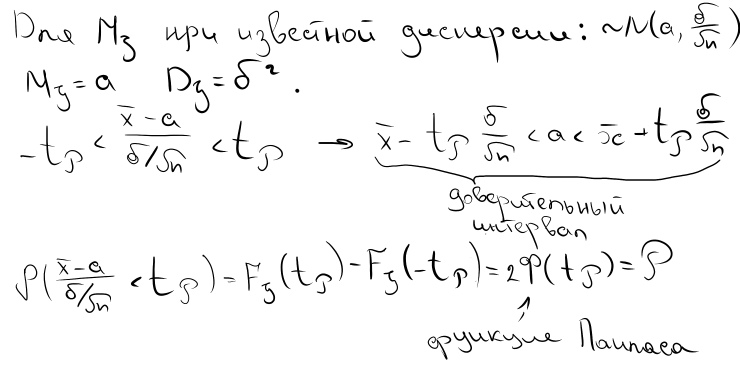 Для Mξ при известной дисперсии: ~N(a, σ/√n)
Mξ = a Dξ = σ².
-tₚ < (x̄ - a)/(σ/√n) < tₚ → x̄ - tₚ σ/√n < a < x̄ + tₚ σ/√n
доверительный
интервал
P((x̄ - a)/(σ/√n) < tₚ) = Fξ(tₚ) - Fξ(-tₚ) = 2Φ(tₚ) = P
функция Лапласа